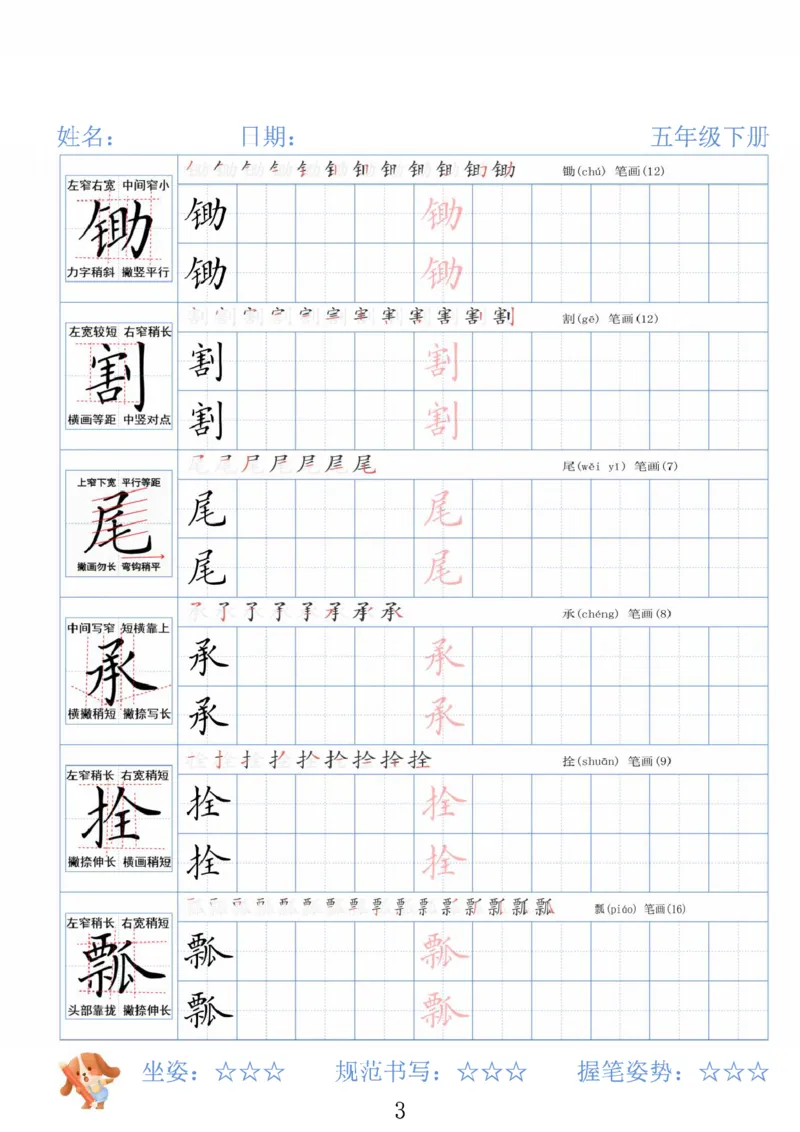 姓名： 日期： 五年级下册
锄(chú) 笔画(12)
左窄右宽 中间窄小
锄
力字稍斜 撇竖平行
锄 锄
锄 锄
割(gē) 笔画(12)
左宽较短 右窄稍长
割
横画等距 中竖对点
割 割
割 割
尾(wěi yǐ) 笔画(7)
上窄下宽 平行等距
尾
撇画勿长 弯钩稍平
尾 尾
尾 尾
承(chéng) 笔画(8)
中间写窄 短横靠上
承
横撇稍短 撇捺写长
承 承
承 承
拴(shuān) 笔画(9)
左窄稍长 右宽稍短
拴
撇捺伸长 横画稍短
拴 拴
拴 拴
瓢(piáo) 笔画(16)
左窄稍长 右宽稍短
瓢
头部靠拢 撇捺伸长
瓢 瓢
瓢 瓢
坐姿：☆☆☆ 规范书写：☆☆☆ 握笔姿势：☆☆☆
3